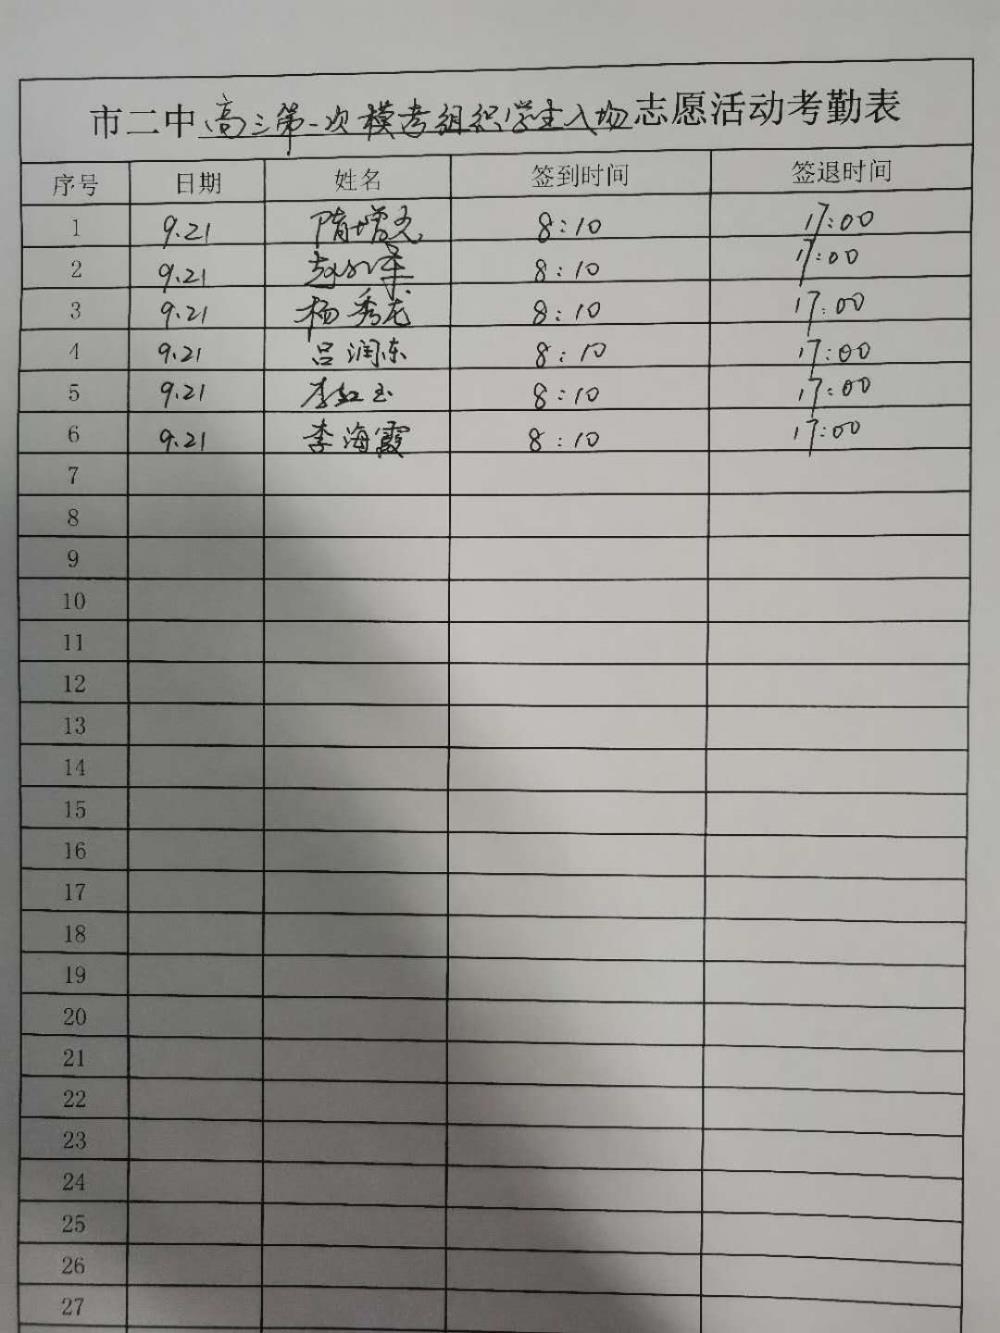 市二中高三第一次模考组织学生入场志愿活动考勤表
序号 日期 姓名 签到时间 签退时间
1 9.21 隋增 8:10 17:00
2 9.21 赵 8:10 17:00
3 9.21 杨秀龙 8:10 17:00
4 9.21 吕润东 8:10 17:00
5 9.21 李红玉 8:10 17:00
6 9.21 李海霞 8:10 17:00
7
8
9
10
11
12
13
14
15
16
17
18
19
20
21
22
23
24
25
26
27